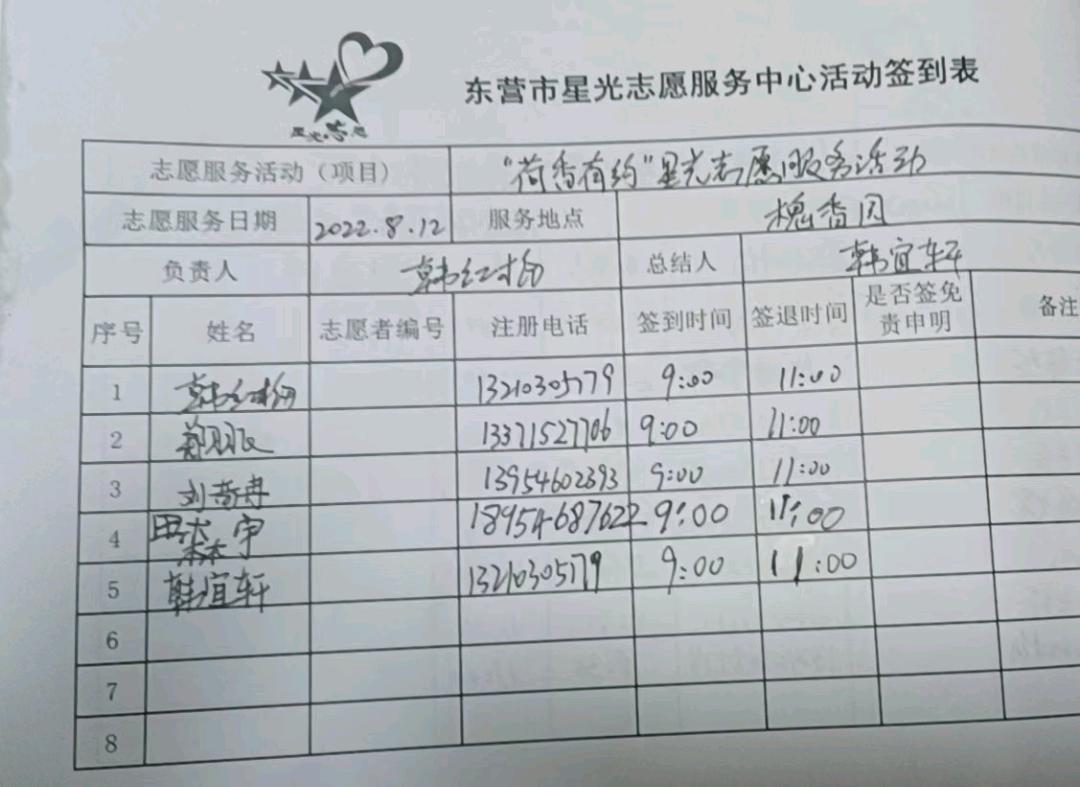 星光志愿
东营市星光志愿服务中心活动签到表
志愿服务活动（项目） “荷香有约”星光志愿服务活动
志愿服务日期 2022.8.12 服务地点 槐香园
负责人 韩红梅 总结人 韩宜轩
序号 姓名 志愿者编号 注册电话 签到时间 签退时间 是否签免责申明 备注
1 韩红梅 13210305179 9:00 11:00
2 13371527706 9:00 11:00
3 13954602393 9:00 11:00
4 18954687622 9:00 11:00
5 韩宜轩 13210305179 9:00 11:00
6
7
8